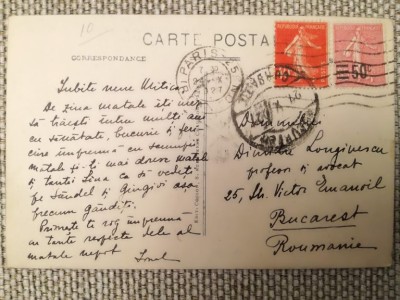 10
CARTE POSTA
CORRESPONDANCE
PARIS
27
REPUBLIQUE FRANÇAISE
50c
BUCUREȘTI
Iubite nene Mitică
De ziua matale îți urez
să trăești întru mulți ani
cu sănătate, bucurie și feri-
cire împreună cu
matale și-ți mai doresc matale
și tanti Lina ca să vedeți
pe Săndel și Gingiși așa
precum gândiți.
Primește te rog împreună
cu tante respecte dela al
matale nepot Ionel
Domnului
Dimitrie Longinescu
profesor și avocat
25, Str. Victor Emanoil
Bucarest
Roumanie